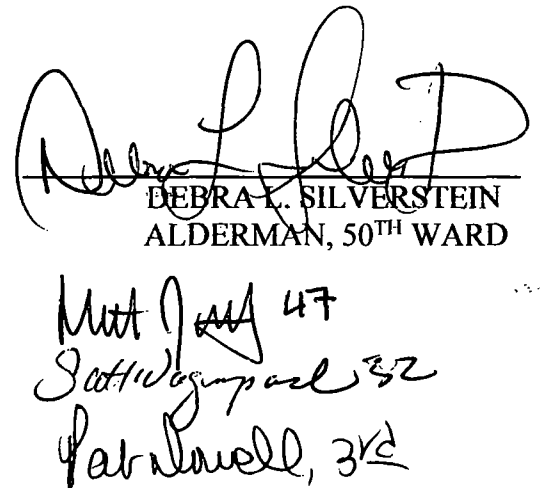 Debra L. Silverstein
DEBRA L. SILVERSTEIN
ALDERMAN, 50TH WARD
Matt 47
Scott Waguespack 32
Pat Dowell, 3rd